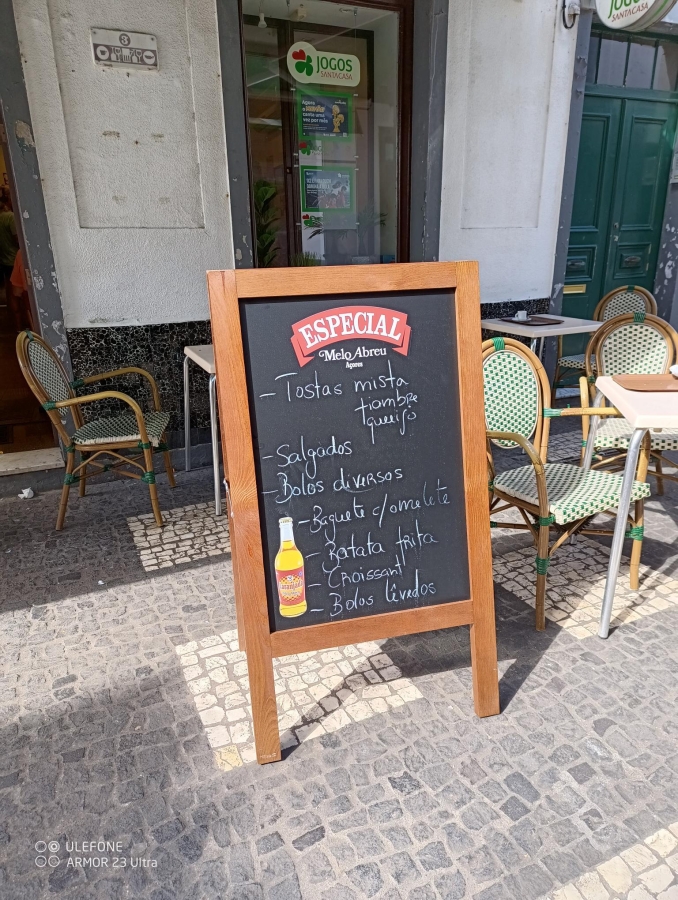 3
JOGOS
SANTACASA
JOGOS
SANTACASA
Agora
ESPECIAL
Melo Abreu
Açores
- Tostas mista
fiambre
queijo
- Salgados
- Bolos diversos
- Baguete c/omelete
- Batata frita
- Croissant
- Bolos lêvedos
ULEFONE
ARMOR 23 Ultra